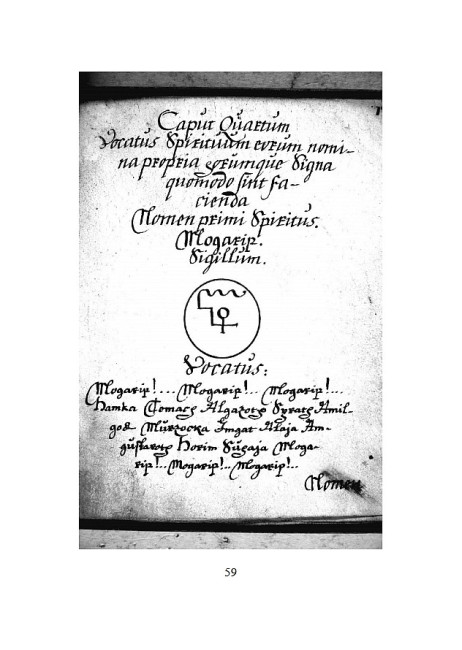 Caput Quartum
Vocatus Spirituum eorum nomi-
na propria eorumque Signa
quomodo sint fa-
cienda
Nomen primi Spiritus.
Mogarip.
Sigillum.
Vocatus:
Mogarip!... Mogarip!.. Mogarip!...
Hamka Temach Algazoth Syrath Amil-
gos Murzocka Imgat Alaja Am-
guskaroth Horim Suhaja Moga-
rip!.. Mogarip!.. Mogarip!..
Nomen
59